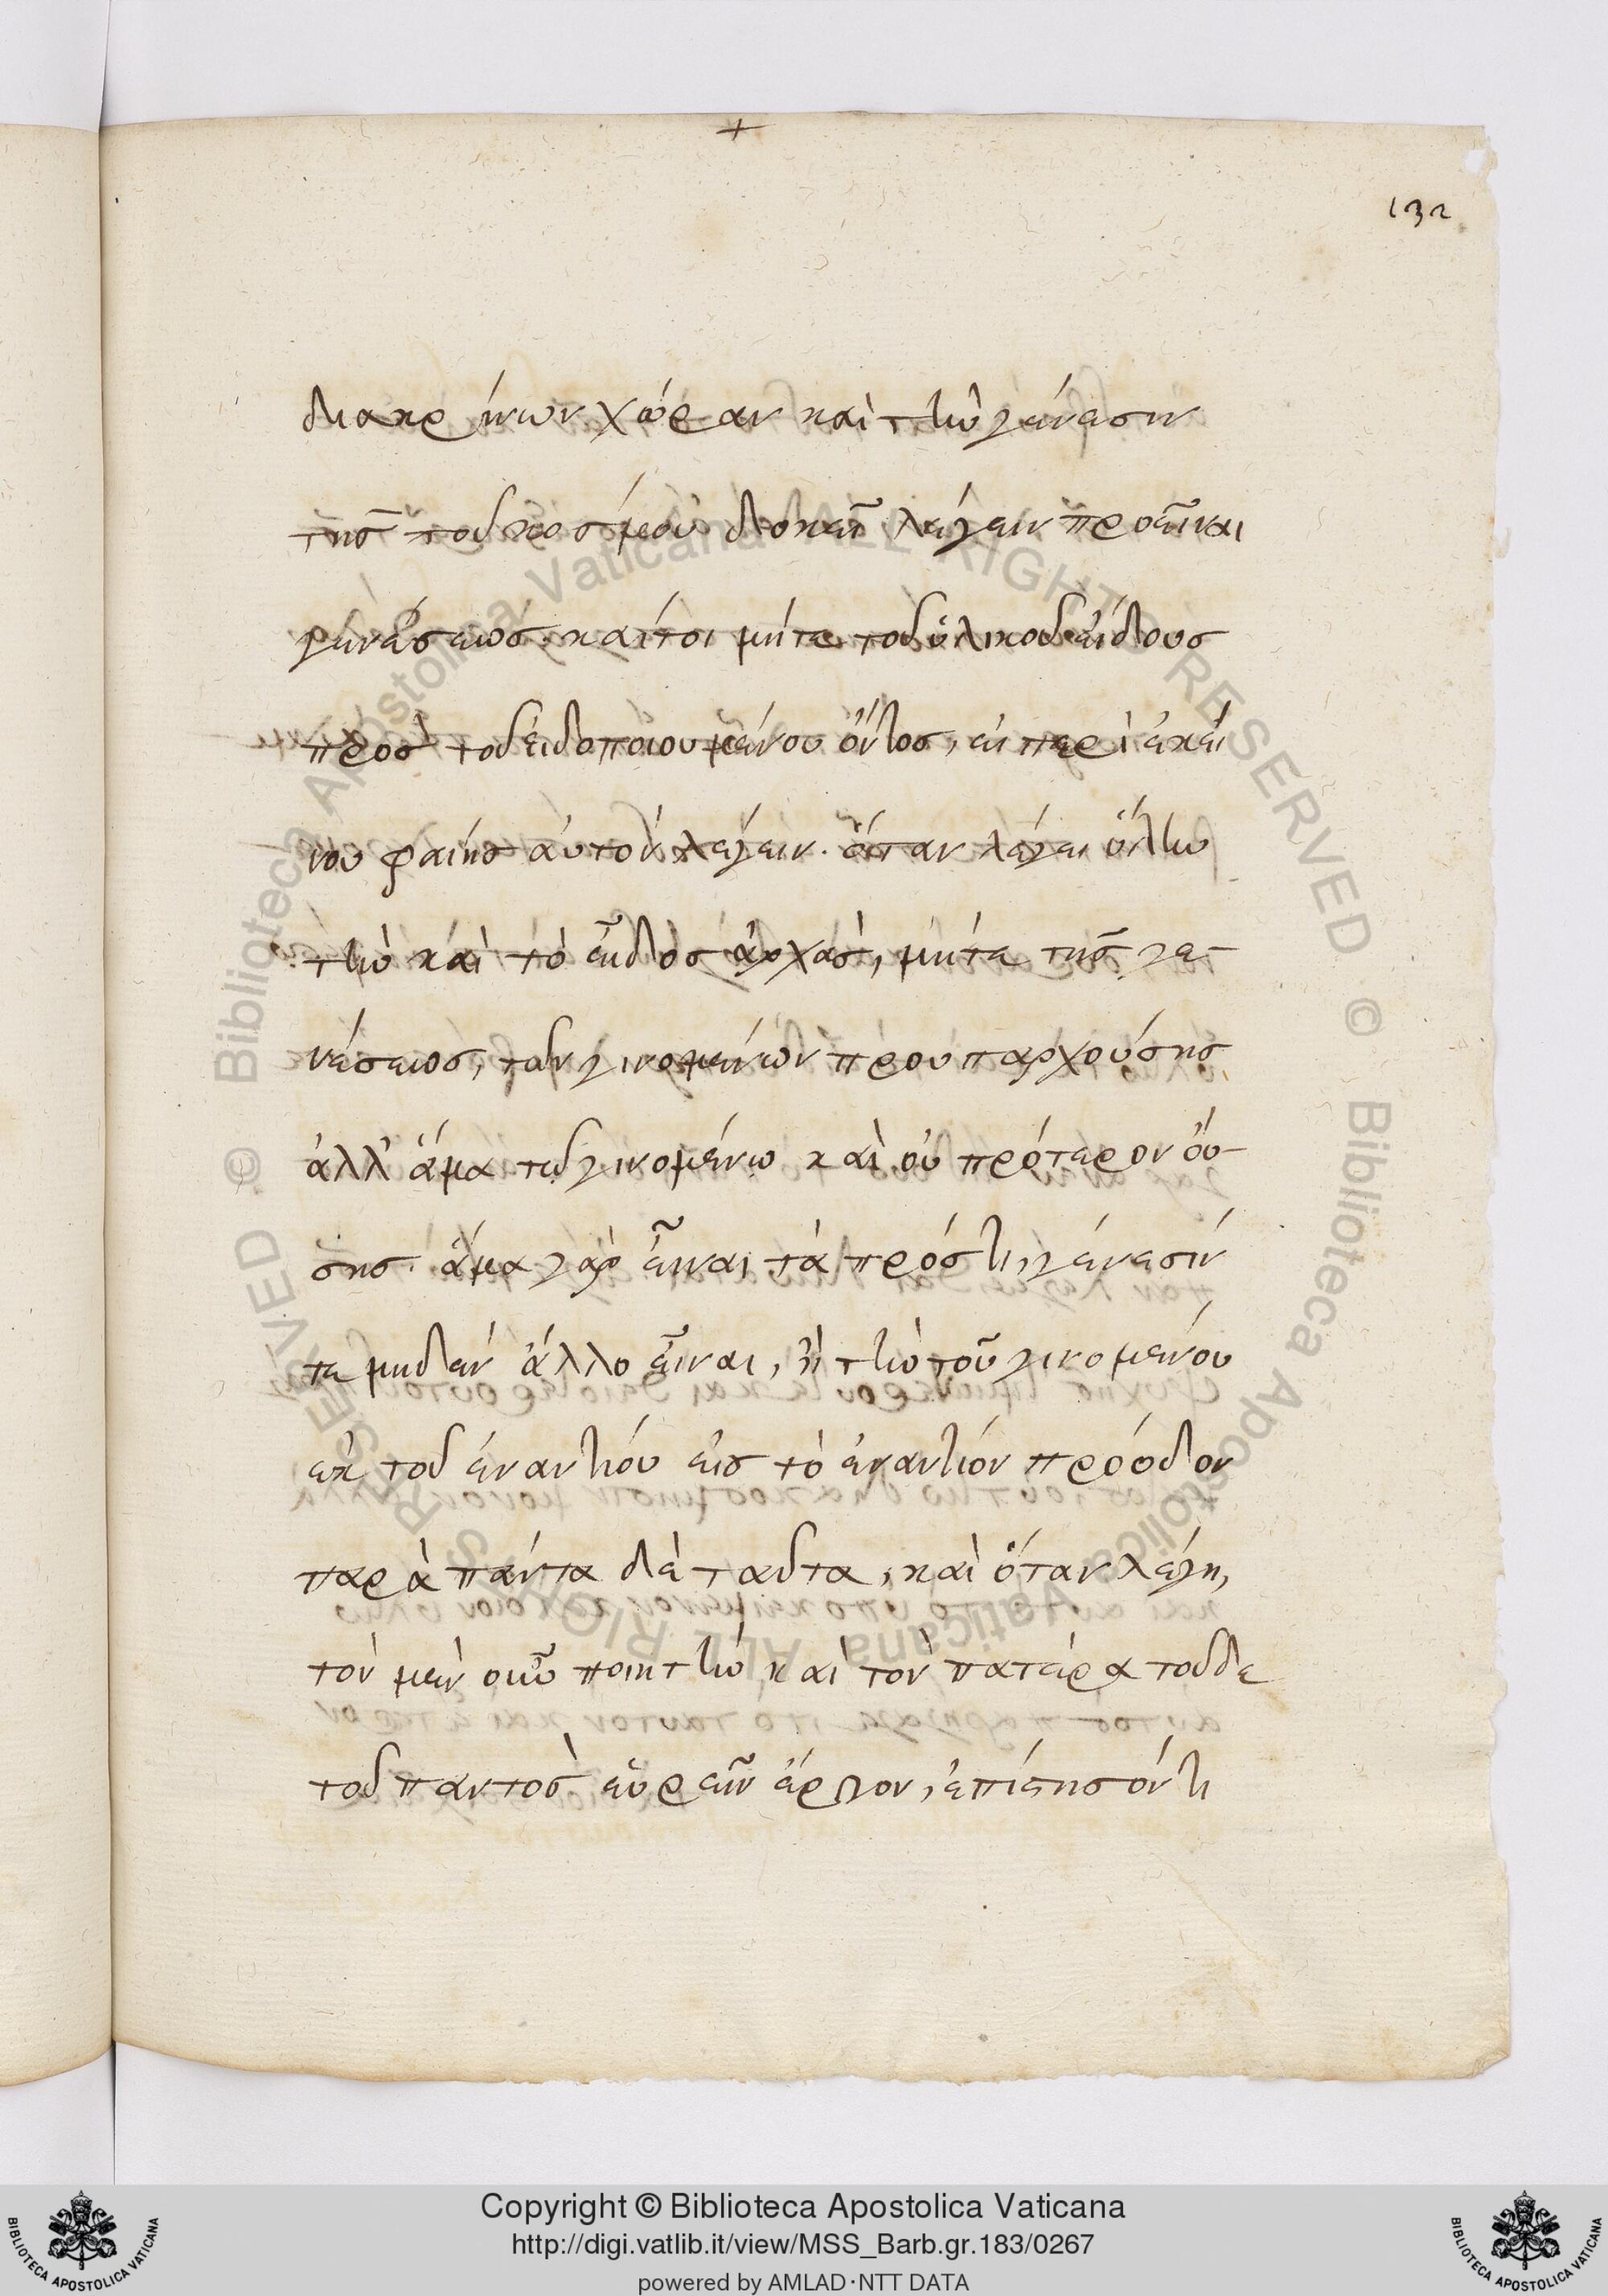 132
διακρίνων χώραν καὶ τὴν γένεσιν
τῆς τοῦ κοσμοῦ δοκεῖ λέγειν προεῖναι
γενέσεως. καίτοι μήτε τοῦ ὑλικοῦ εἴδους
πρὸς τοῦ εἰδοποιουμένου ὄντος, εἰ περὶ ἐκεί
νου φαίης αὐτὸν λέγειν. ὅταν λέγει ὕλην
τὴν καὶ τὸ εἶδος ἀρχὰς, μήτε τῆς γε-
νέσεως, τῶν γινομένων προυπαρχούσης
ἀλλ' ἅμα τῷ γινομένω καὶ οὐ πρότερον οὔ-
σης. ἅμα γὰρ εἶναι τὰ πρός τι, γένεσίν
τε μηδὲν ἄλλο εἶναι, ἢ τὴν τοῦ γινομένου
ἐκ τοῦ ἐναντίου εἰς τὸ ἐναντίον πρόοδον
παρὰ πάντα δὲ ταῦτα, καὶ ὅταν λέγη,
τὸν μὲν οὖν ποιητὴν καὶ τὸν πατέρα τοῦδε
τοῦ παντὸς εὑρεῖν ἔργον, ἐπίστησόν τι
Copyright © Biblioteca Apostolica Vaticana
http://digi.vatlib.it/view/MSS_Barb.gr.183/0267
powered by AMLAD·NTT DATA
BIBLIOTECA APOSTOLICA VATICANA
BIBLIOTECA APOSTOLICA VATICANA
© Biblioteca Apostolica Vaticana ALL RIGHTS RESERVED
© Biblioteca Apostolica Vaticana ALL RIGHTS RESERVED